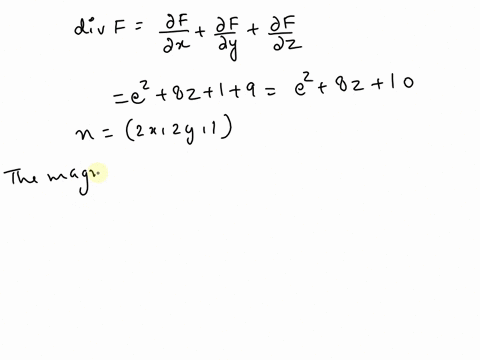 div F = ∂F/∂x + ∂F/∂y + ∂F/∂z
= e² + 8z + 1 + 9 = e² + 8z + 10
n = (2x, 2y, 1)
The mag